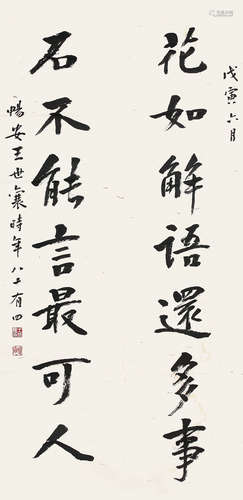 戊寅六月
花如解語還多事
石不能言最可人
暢安王世襄時年八十有四